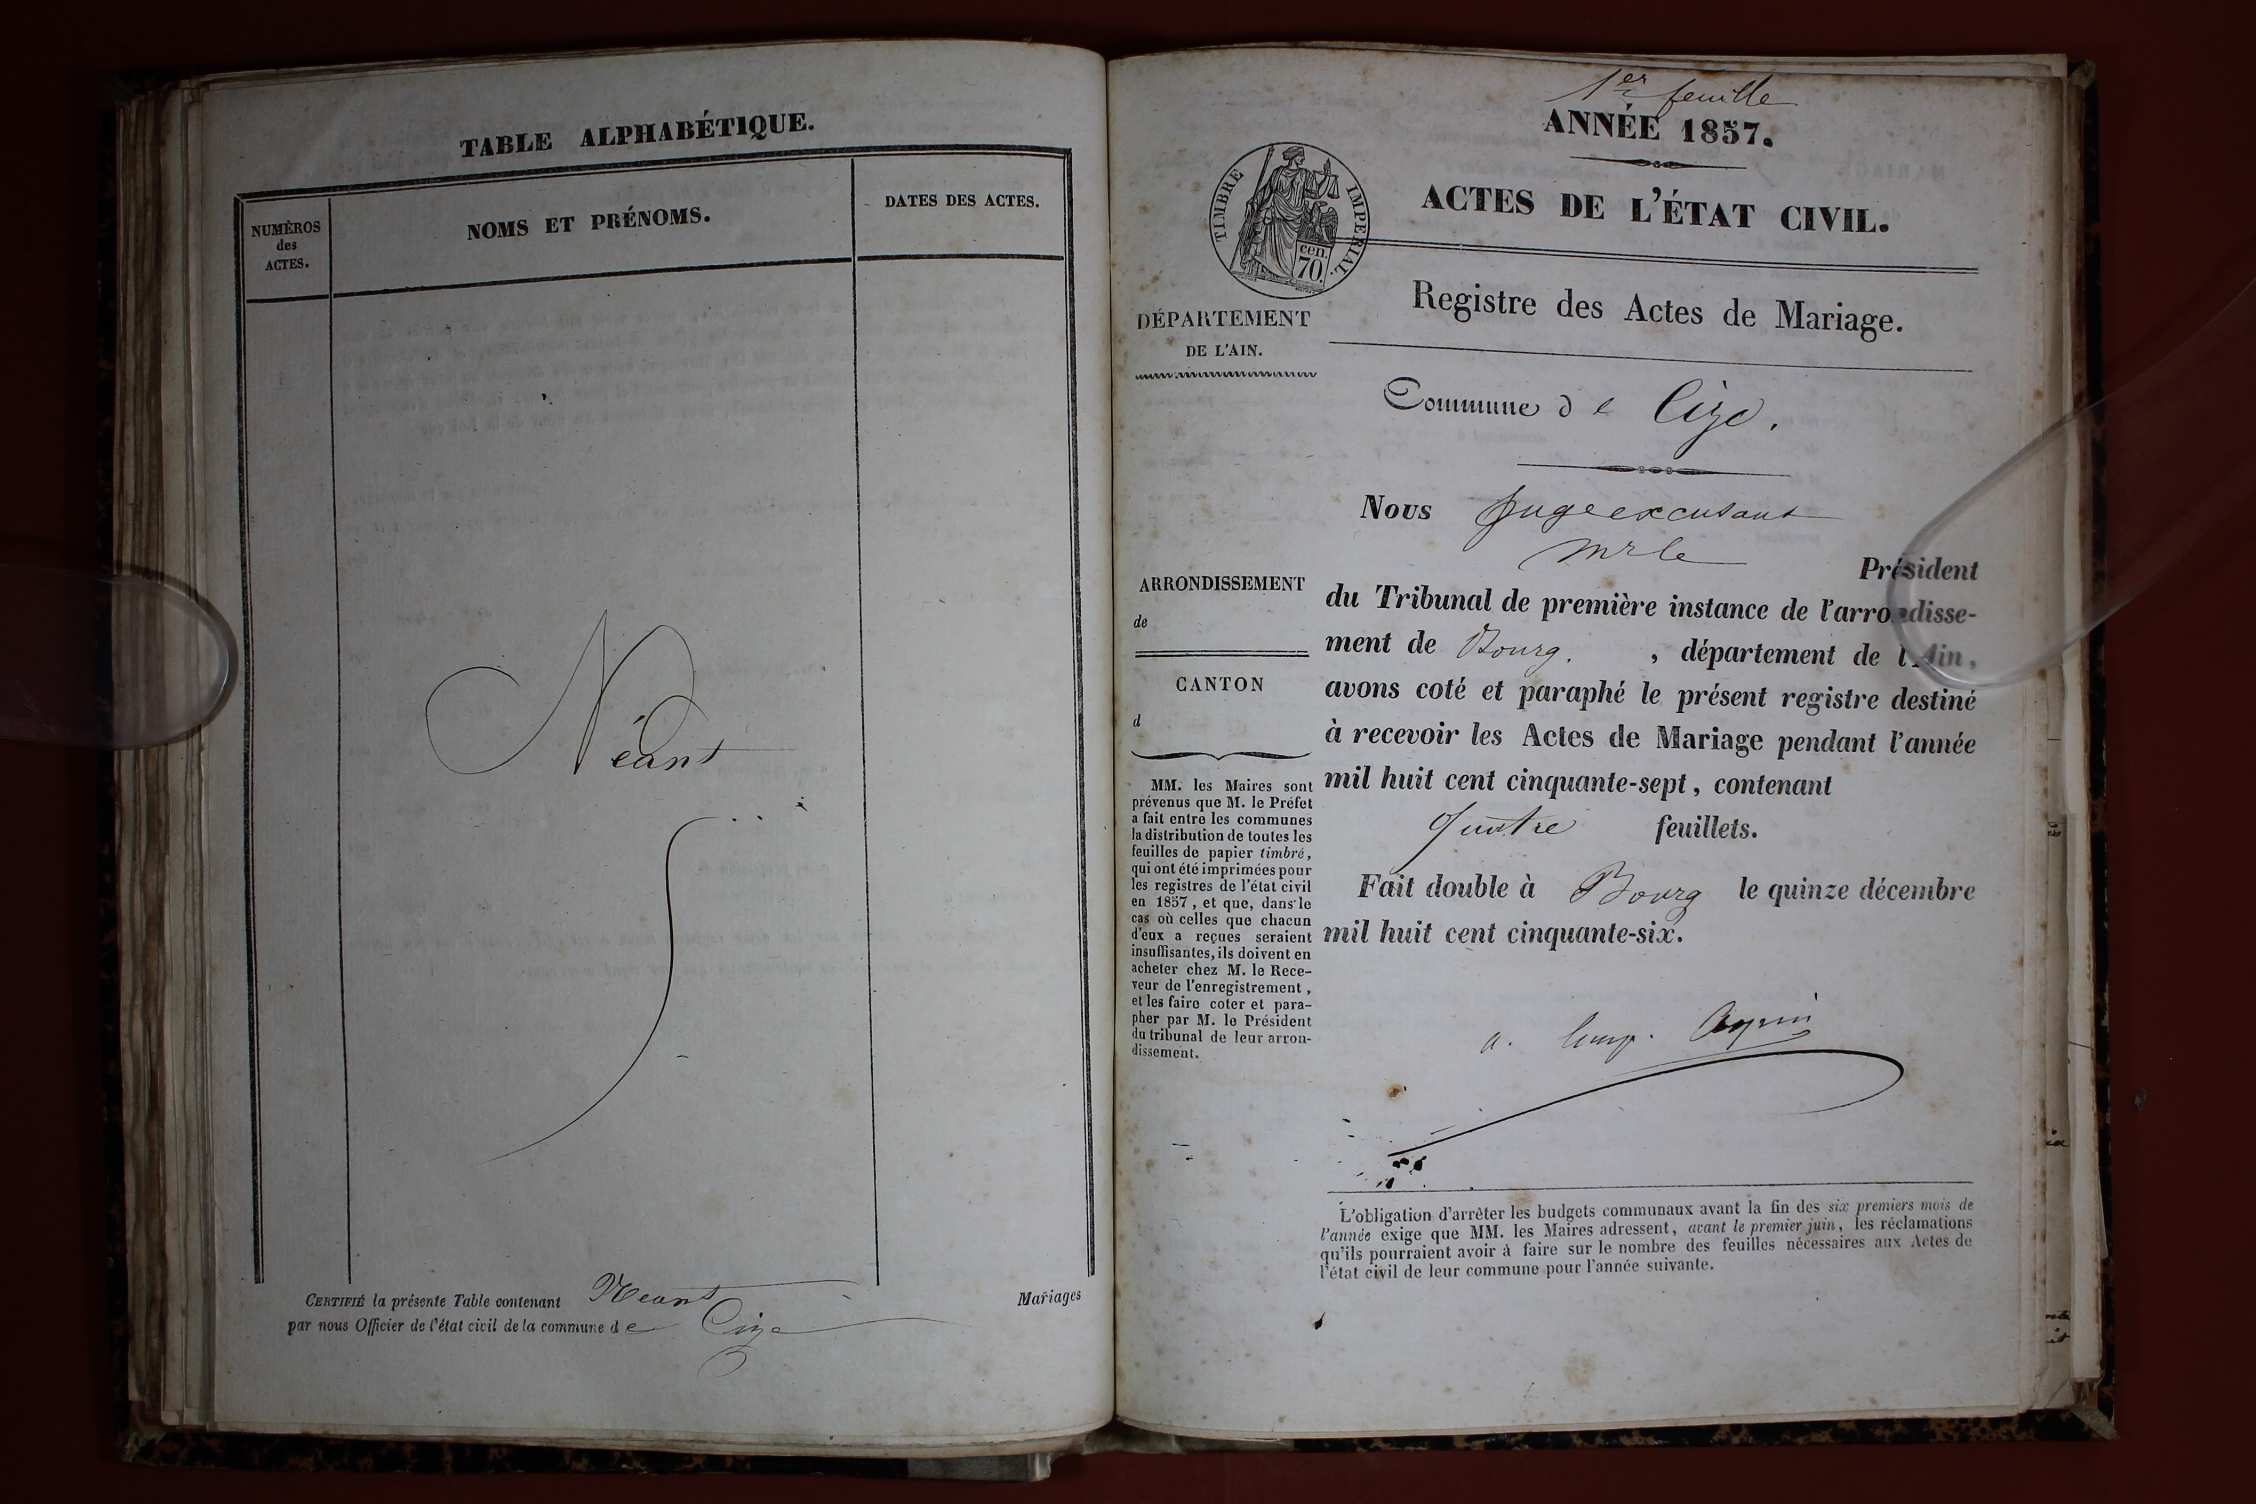 TABLE ALPHABÉTIQUE.
NUMÉROS
des
ACTES.
NOMS ET PRÉNOMS.
DATES DES ACTES.
Néant
CERTIFIÉ la présente Table contenant Néant Mariages
par nous Officier de l'état civil de la commune de Cize
1ère feuille
ANNÉE 1857.
ACTES DE L'ÉTAT CIVIL.
TIMBRE IMPERIAL.
cen.
70.
DÉPARTEMENT
DE L'AIN.
Registre des Actes de Mariage.
Commune de Cize.
Nous juge excusant
mr le
Président
du Tribunal de première instance de l'arrondisse-
ment de Bourg. , département de l'Ain,
avons coté et paraphé le présent registre destiné
à recevoir les Actes de Mariage pendant l'année
mil huit cent cinquante-sept, contenant
quatre feuillets.
Fait double à Bourg le quinze décembre
mil huit cent cinquante-six.
ARRONDISSEMENT
de
CANTON
d
MM. les Maires sont
prévenus que M. le Préfet
a fait entre les communes
la distribution de toutes les
feuilles de papier timbré,
qui ont été imprimées pour
les registres de l'état civil
en 1857, et que, dans le
cas où celles que chacun
d'eux a reçues seraient
insuffisantes, ils doivent en
acheter chez M. le Rece-
veur de l'enregistrement,
et les faire coter et para-
pher par M. le Président
du tribunal de leur arron-
dissement.
L'obligation d'arrêter les budgets communaux avant la fin des six premiers mois de
l'année exige que MM. les Maires adressent, avant le premier juin, les réclamations
qu'ils pourraient avoir à faire sur le nombre des feuilles nécessaires aux Actes de
l'état civil de leur commune pour l'année suivante.